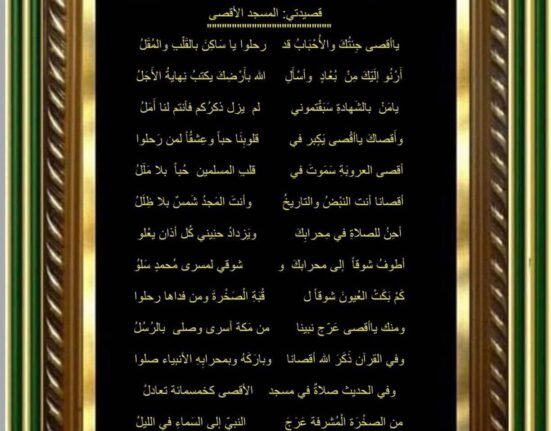 قصيدتي: المسجد الأقصى
""""""""""""""""""""""""""""""
ياأقصى جِئتُكَ والأَحْبَابُ قد رحلوا يا ساكِنَ بالقَلْبِ والمُقَلُ
أرْنُو إلَيْكَ مِنْ بُعادٍ وأسْألِ الله بأرْضِكَ يكتبُ نِهايةُ الأَجَلُ
يامَنْ بالشَهادةِ سَبَقْتموني لم يزل ذكرُكم فأنتم لنا أمَلُ
وأَقصاكَ ياأقْصى يَكبِر في قلوبِنَا حباً وعِشقُاً لمن رَحلوا
أقصى العروبَةِ سَمَوتَ في قلبِ المسلمين حُباً بلا مَلَلُ
أقصانا أنت النَبْضُ والتاريخُ وأنتَ المَجدُ شَمسٌ بلا ظِلَلُ
أحِنُ للصلاةِ في مِحرابِكَ ويَزدادُ حنِيني كُل أذان يعْلو
أطوفُ شوقاً إلى محرابكَ و شوقي لمسرى مُحمدٍ سَلَوُ
كَمْ بَكَتْ العُيونَ شوقاً ل قُبَةِ الْصَخْرةَ ومن فداها رحلوا
ومنك ياأقصى عَرّجَ نبينا من مَكة أسرى وصلى بالرُسُلُ
وفي القرآن ذَكَرَ الله أقصانا وبارَكَهُ وبمحرابِهِ الأنبياء صلوا
وفي الحديث صلاةٌ في مسجد الأقصى كخمسمائة تعادلُ
من الصخْرَة الْمُشرفة عَرَجَ النبيّ إلى السَماءِ في الليلُ